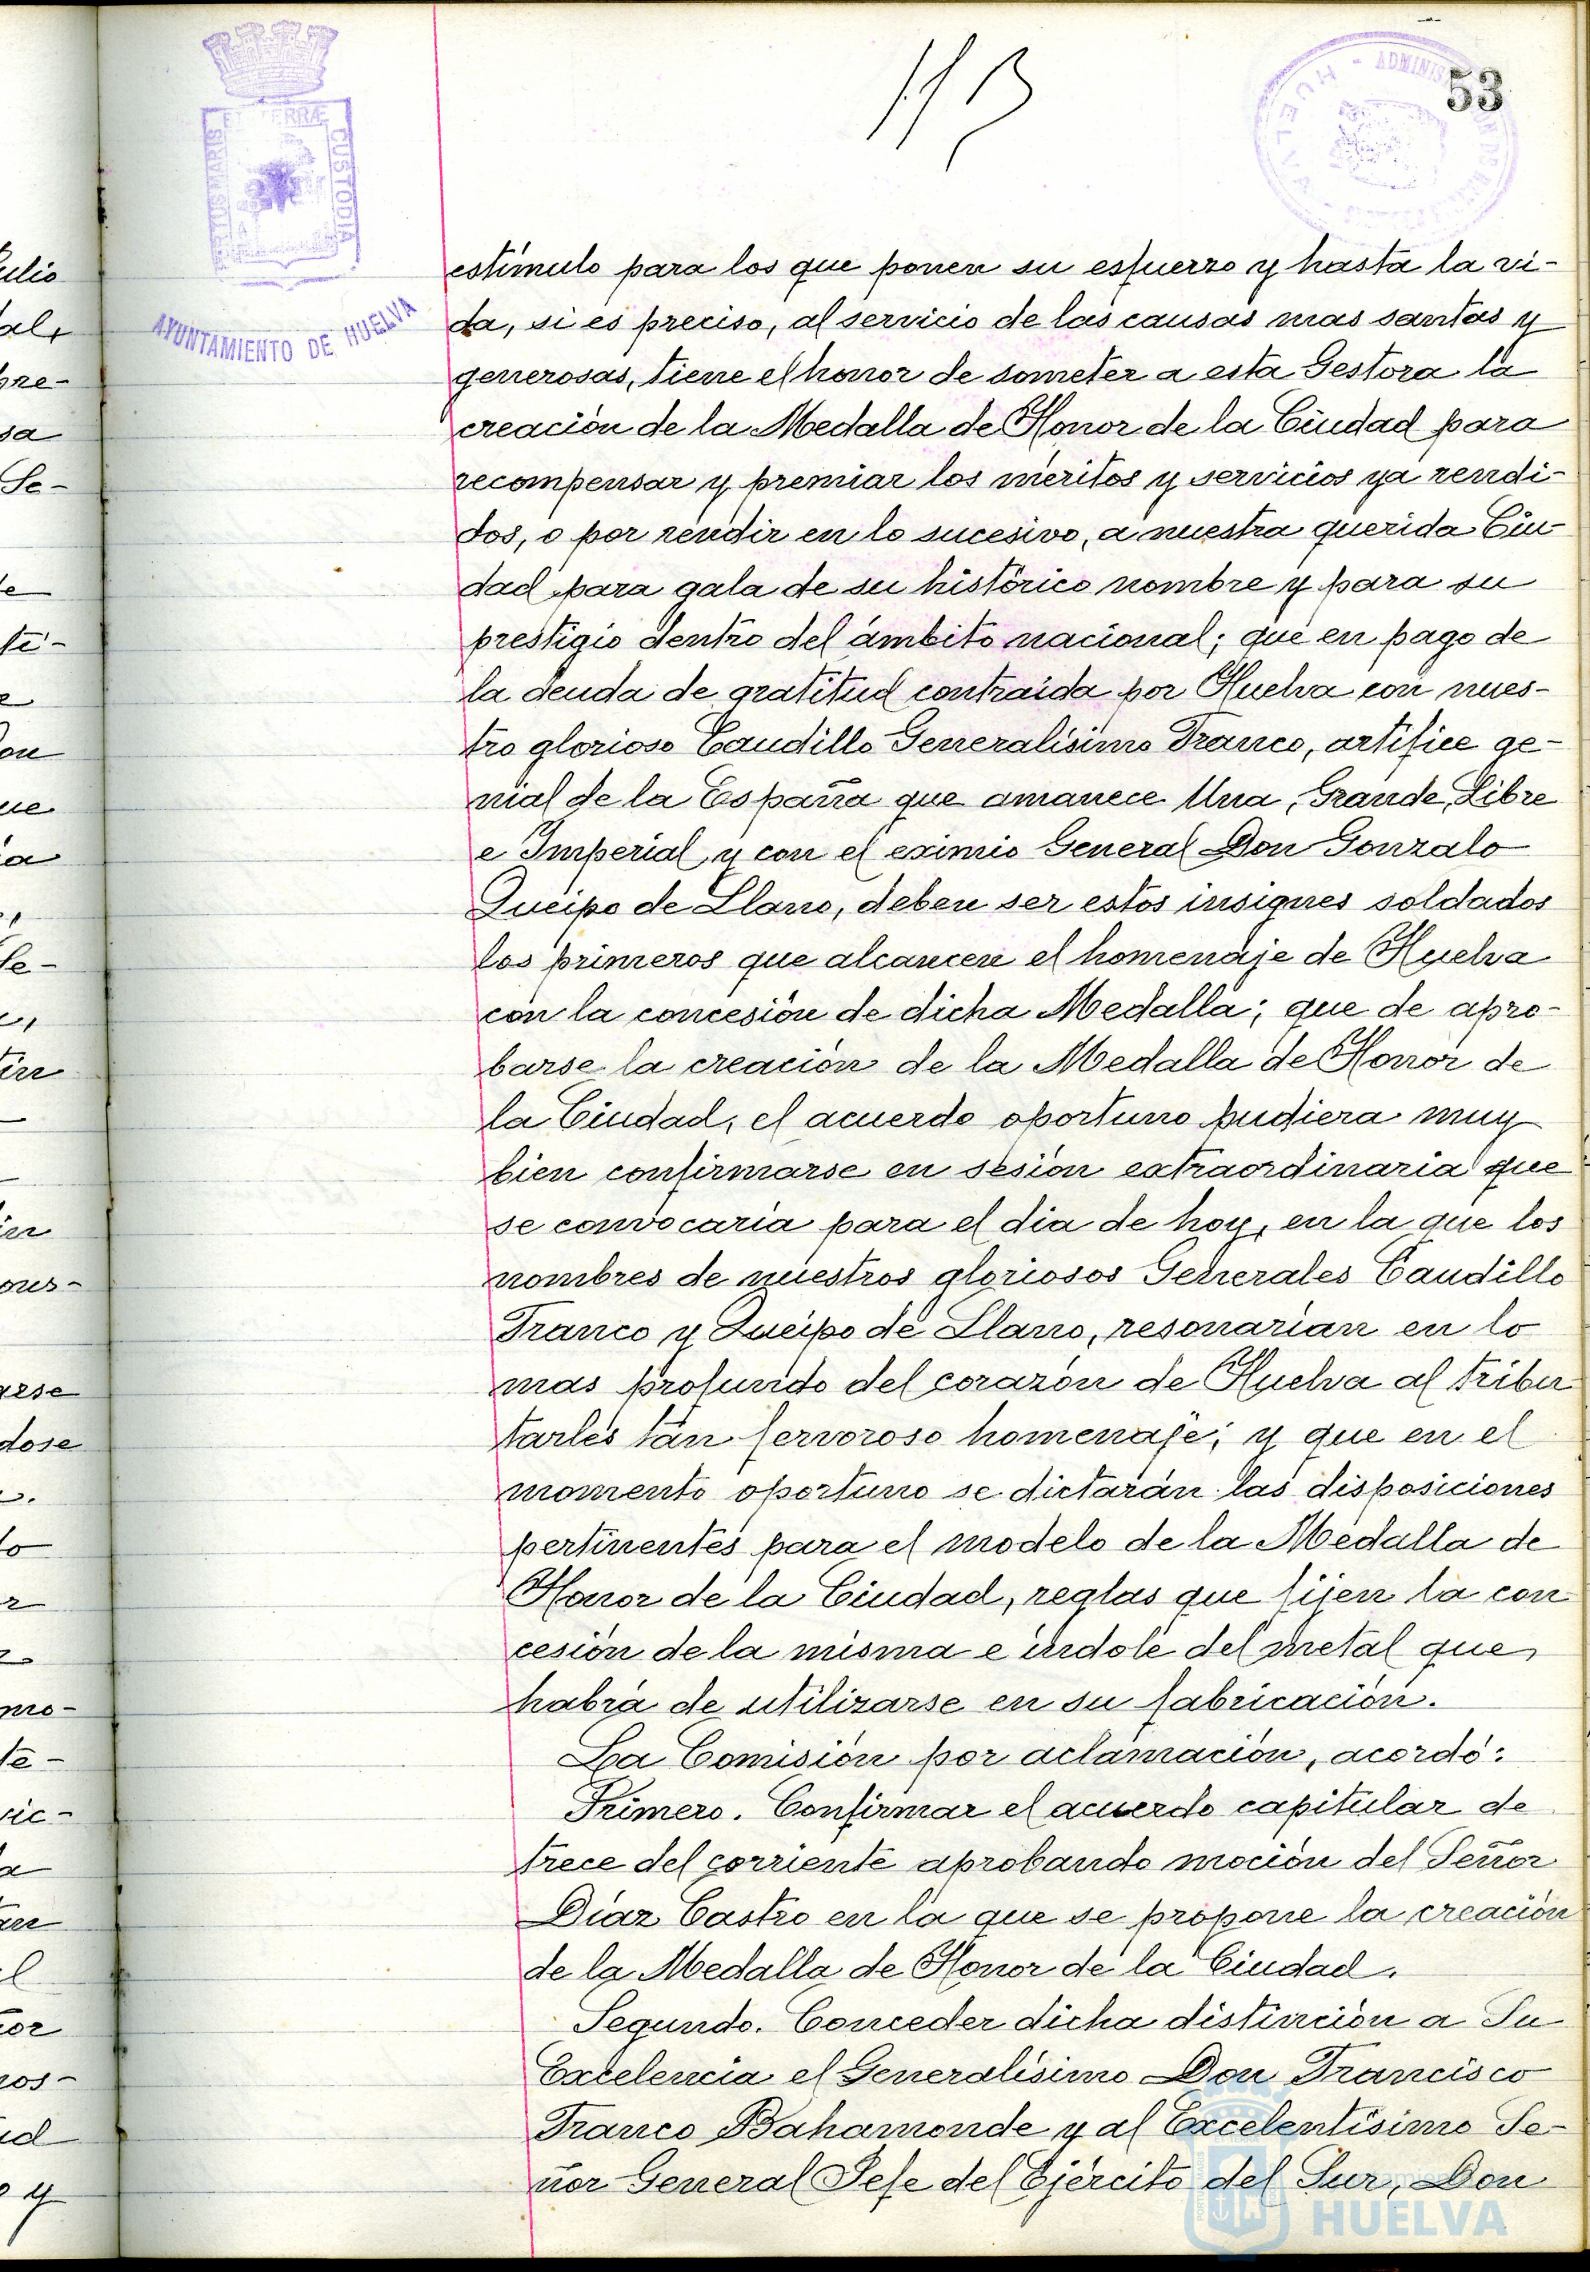 113
53
PORTUS MARIS ET TERRÆ CUSTODIA
AYUNTAMIENTO DE HUELVA
HUELVA
estímulo para los que ponen su esfuerzo y hasta la vi-
da, si es preciso, al servicio de las causas mas santas y
generosas, tiene el honor de someter a esta Gestora la
creación de la Medalla de Honor de la Ciudad para
recompensar y premiar los méritos y servicios ya rendi-
dos, o por rendir en lo sucesivo, a nuestra querida Ciu-
dad para gala de su histórico nombre y para su
prestigio dentro del ámbito nacional; que en pago de
la deuda de gratitud contraída por Huelva con nues-
tro glorioso Caudillo Generalísimo Franco, artífice ge-
nial de la España que amanece Una, Grande, Libre
e Imperial y con el eximio General Don Gonzalo
Queipo de Llano, deben ser estos insignes soldados
los primeros que alcancen el homenaje de Huelva
con la concesión de dicha Medalla; que de apro-
barse la creación de la Medalla de Honor de
la Ciudad, el acuerdo oportuno pudiera muy
bien confirmarse en sesión extraordinaria que
se convocaría para el día de hoy, en la que los
nombres de nuestros gloriosos Generales Caudillo
Franco y Queipo de Llano, resonarían en lo
mas profundo del corazón de Huelva al tribu
tarles tan fervoroso homenaje; y que en el
momento oportuno se dictarán las disposiciones
pertinentes para el modelo de la Medalla de
Honor de la Ciudad, reglas que fijen la con
cesión de la misma e índole del metal que
habrá de utilizarse en su fabricación.
La Comisión por aclamación, acordó:
Primero. Confirmar el acuerdo capitular de
trece del corriente aprobando moción del Señor
Díaz Castro en la que se propone la creación
de la Medalla de Honor de la Ciudad.
Segundo. Conceder dicha distinción a Su
Excelencia el Generalísimo Don Francisco
Franco Bahamonde y al Excelentísimo Se-
ñor General Jefe del Ejército del Sur, Don
HUELVA